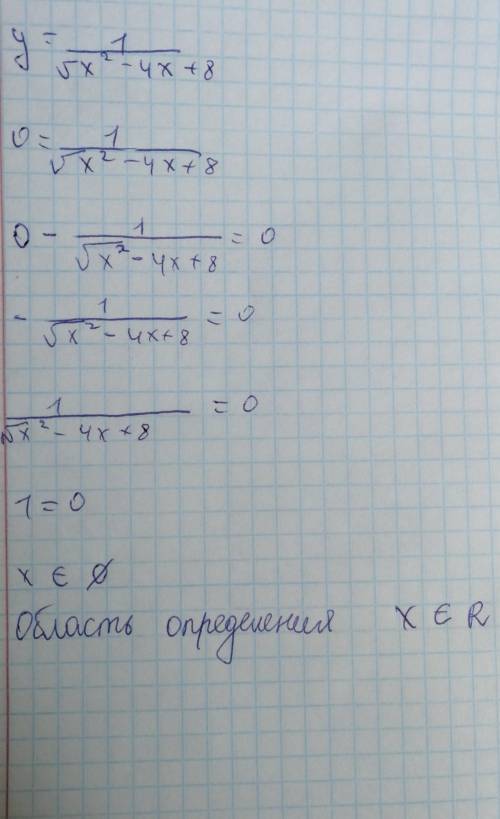 y = 1/√x² - 4x + 8
0 = 1/√x² - 4x + 8
0 - 1/√x² - 4x + 8 = 0
- 1/√x² - 4x + 8 = 0
1/√x² - 4x + 8 = 0
1 = 0
x ∈ ∅
Область определения x ∈ R